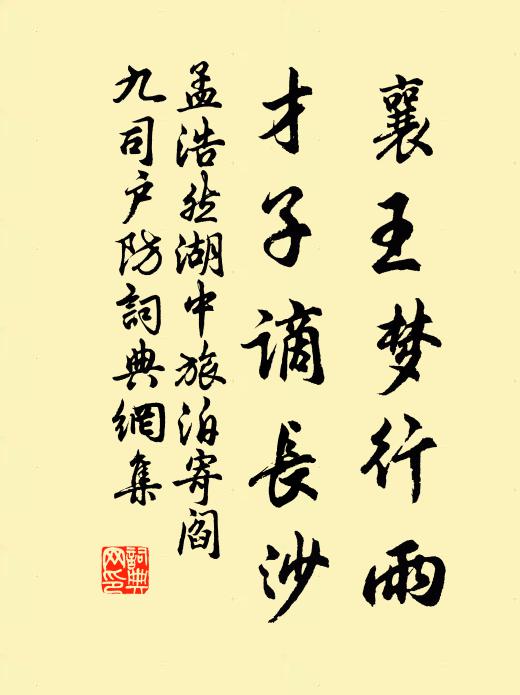 襄王梦行雨
才子谪長沙
孟浩然湖中旅泊寄閻
九司户防詞典網集
詞典网印